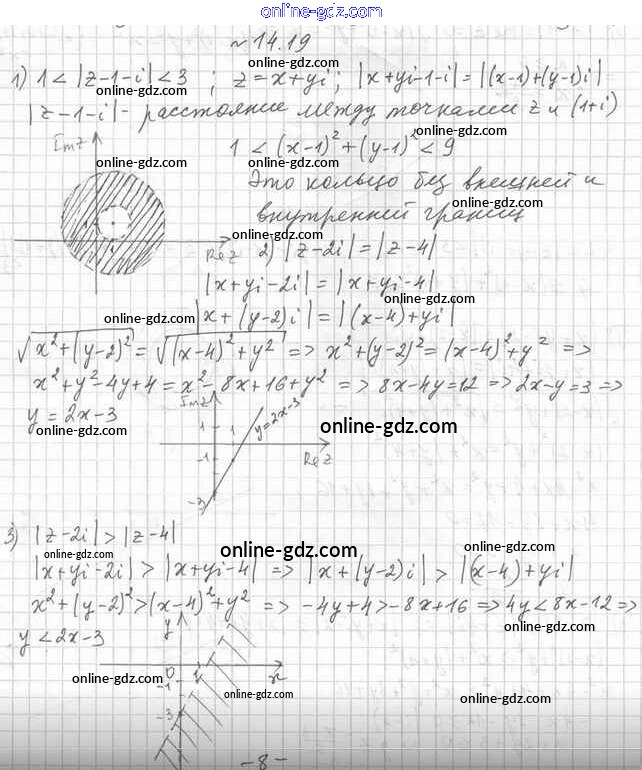 online-gdz.com
№14.19
1) 1 < |z-1-i| < 3 ; z=x+yi; |x+yi-1-i|=|(x-1)+(y-1)i|
online-gdz.com online-gdz.com
|z-1-i| - расстояние между точками z и (1+i)
online-gdz.com
Imz
1 < (x-1)²+(y-1)² < 9
online-gdz.com
Это кольцо без внешней и
online-gdz.com
внутренней границ
online-gdz.com
Rez
2) |z-2i|=|z-4|
online-gdz.com
|x+yi-2i|=|x+yi-4|
online-gdz.com
online-gdz.com
|x+(y-2)i|=|(x-4)+yi|
√x²+(y-2)² = √(x-4)²+y² => x²+(y-2)²=(x-4)²+y² =>
x²+y²-4y+4=x²-8x+16+y² => 8x-4y=12 => 2x-y=3 =>
y=2x-3
online-gdz.com
Imz
1
-1
-3
y=2x-3
Rez
online-gdz.com
3) |z-2i|>|z-4|
online-gdz.com online-gdz.com online-gdz.com
|x+yi-2i|>|x+yi-4| => |x+(y-2)i|>|(x-4)+yi|
x²+(y-2)²>(x-4)²+y² => -4y+4>-8x+16 => 4y<8x-12 =>
online-gdz.com
y<2x-3
y
0
1
x
-1
-3
online-gdz.com
online-gdz.com
online-gdz.com
-8-